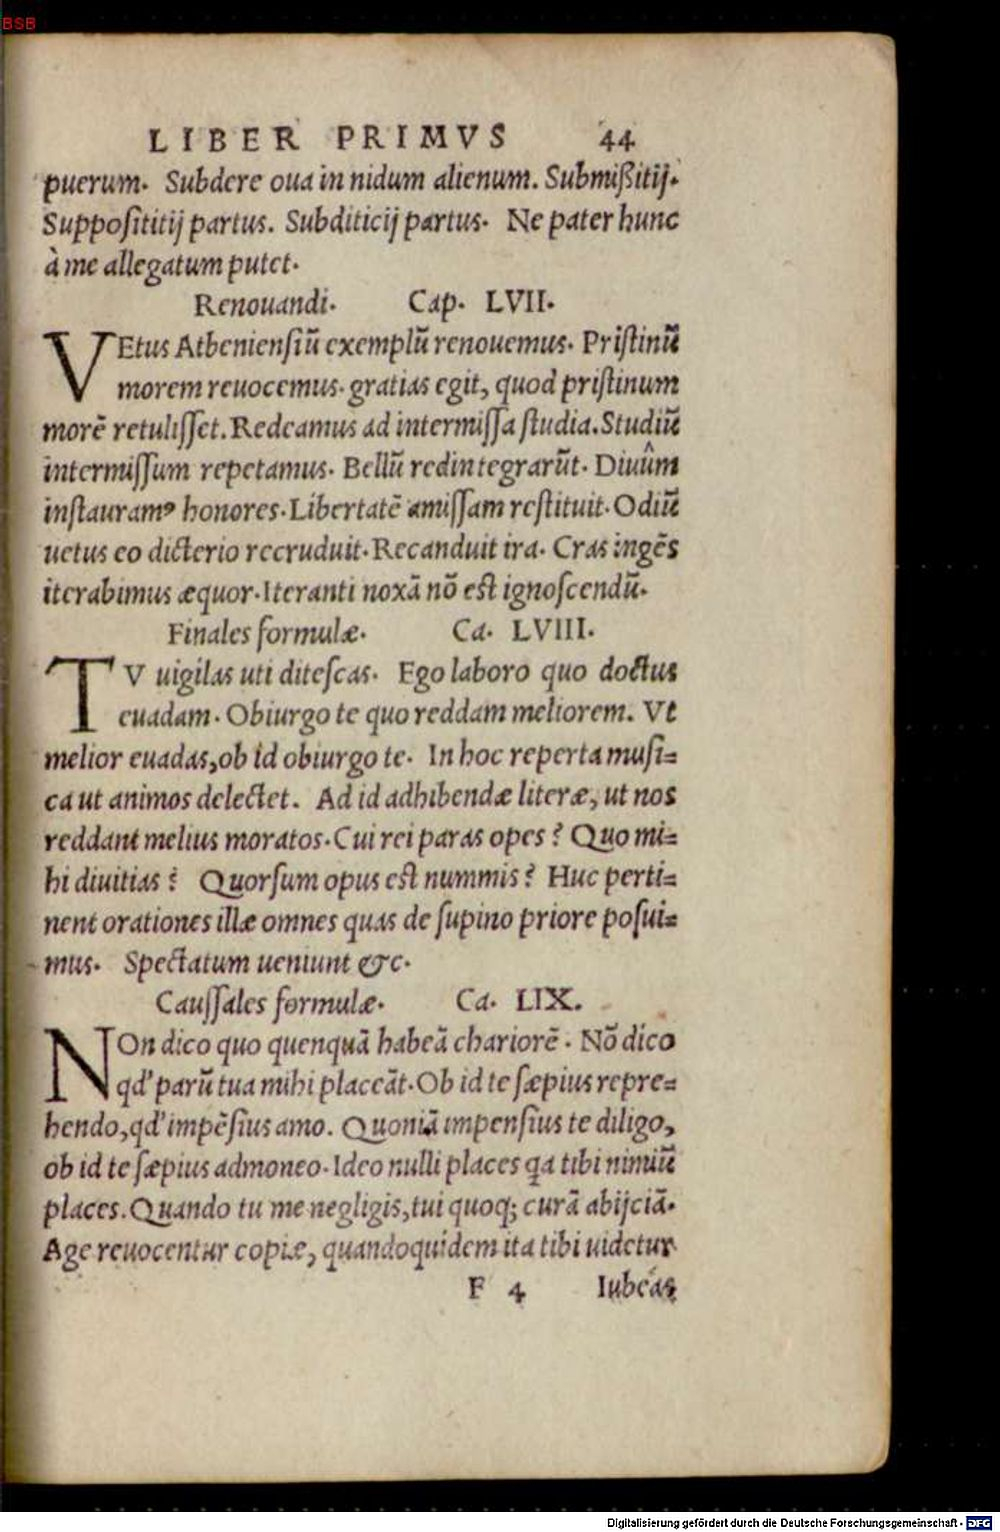 BSB
LIBER PRIMVS 44
puerum. Subdere oua in nidum alienum. Submißitij.
Supposititij partus. Subditicij partus. Ne pater hunc
à me allegatum putet.
Renouandi. Cap. LVII.
VEtus Atheniensiū exemplū renouemus. Pristinū
morem reuocemus. gratias egit, quod pristinum
morē retulisset. Redeamus ad intermissa studia. Studiū
intermissum repetamus. Bellū redintegrarūt. Diuûm
instauramꝰ honores. Libertatē amissam restituit. Odiū
uetus eo dicterio recruduit. Recanduit ira. Cras ingēs
iterabimus æquor. Iteranti noxā nō est ignoscendū.
Finales formulæ. Ca. LVIII.
TV uigilas uti ditescas. Ego laboro quo doctus
euadam. Obiurgo te quo reddam meliorem. Vt
melior euadas, ob id obiurgo te. In hoc reperta musi=
ca ut animos delectet. Ad id adhibendæ literæ, ut nos
reddant melius moratos. Cui rei paras opes? Quo mi=
hi diuitias? Quorsum opus est nummis? Huc perti=
nent orationes illæ omnes quas de supino priore posui=
mus. Spectatum ueniunt &c.
Caussales formulæ. Ca. LIX.
NOn dico quo quenquā habeā chariorē. Nō dico
qd' parū tua mihi placeāt. Ob id te sæpius repre=
hendo, qd' impēsius amo. Quoniā impensius te diligo,
ob id te sæpius admoneo. Ideo nulli places qa tibi nimiū
places. Quando tu me negligis, tui quoq; curā abijciā.
Age reuocentur copiæ, quandoquidem ita tibi uidetur
F 4 Iubeas
Digitalisierung gefördert durch die Deutsche Forschungsgemeinschaft - DFG